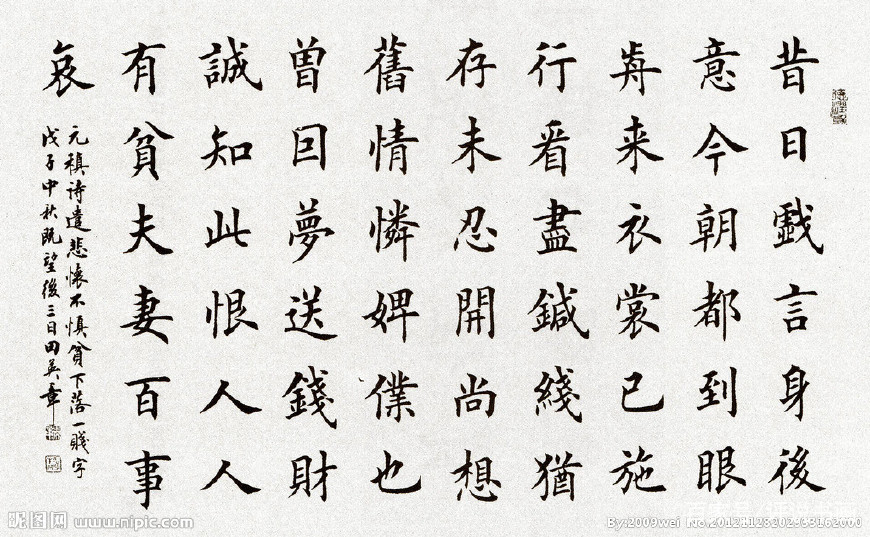 昔日戱言身後
意今朝都到眼
歬来衣裳已施
行看盡鍼綫猶
存未忍開尚想
舊情憐婢僕也
曾囙夢送錢財
誠知此恨人人
有貧夫妻百事
哀
元稹诗遣悲懷不慎貧下落一賤字
戊子中秋既望後三日田英章
昵图网 www.nipic.com
By:2009wei No.20121128202933162000